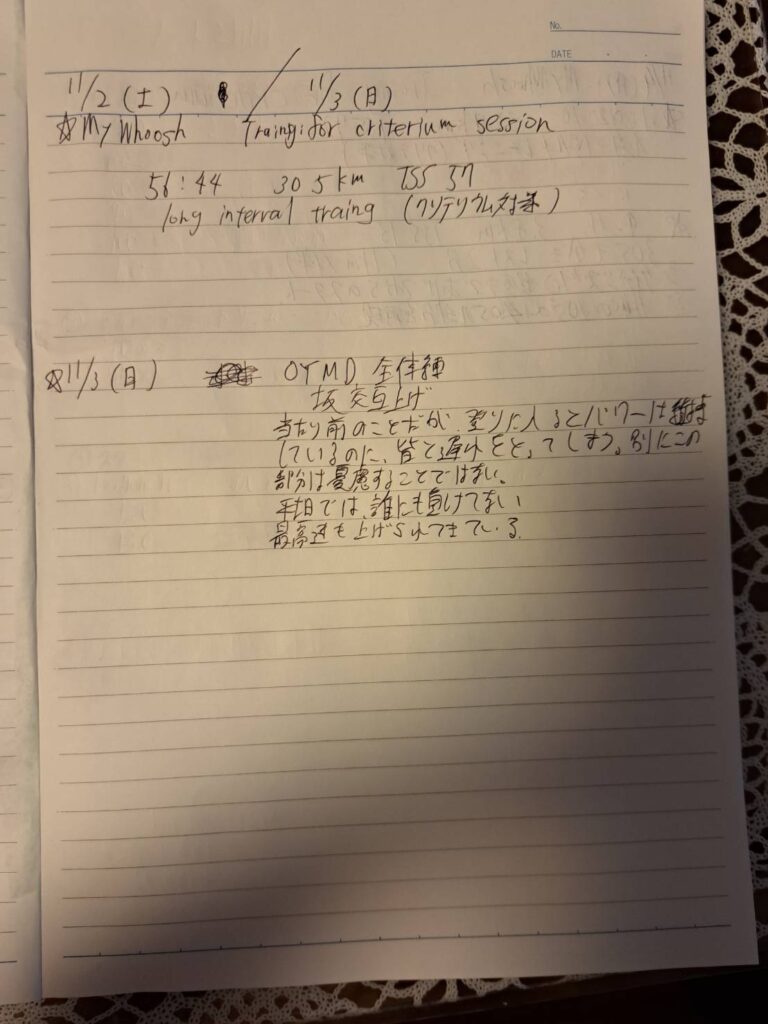 No.
DATE
11/2 (土) / 11/3 (日)
☆My Whoosh Traing:for criterium session
56:44 30 5km TSS 37
long interval traing (クリテリウム対策)
☆11/3 (日) OYMD 全体練
坂 交互上げ
当たり前のことだが、登りに入るとパワーは
しているのに、皆と遅れをとってしまう。別にこの
部分は憂慮することではない。
平坦では、誰にも負けてない
最高速も上げられてきている。